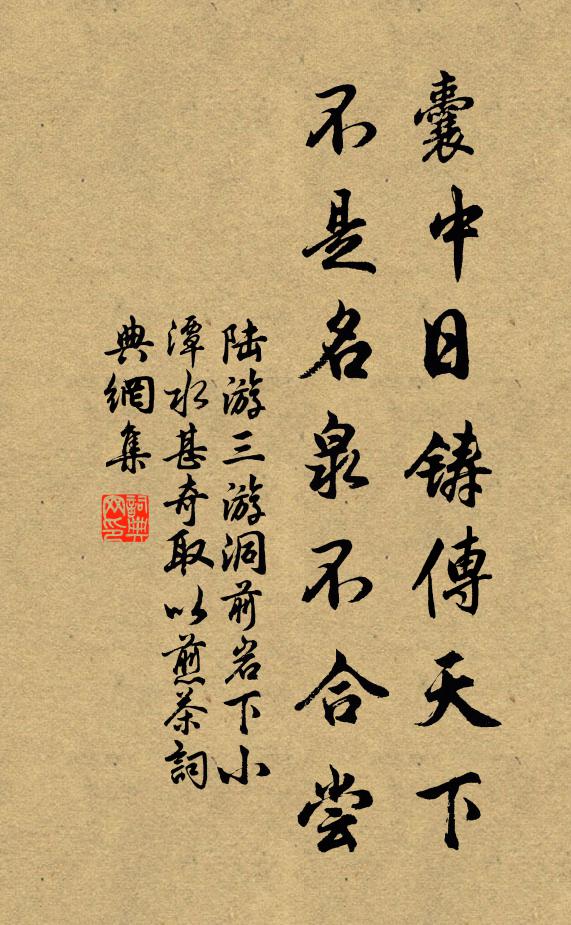 囊中日铸傳天下
不是名泉不合尝
陆游三游洞前岩下小
潭水甚奇取以煎茶詞
典網集
詞典网印